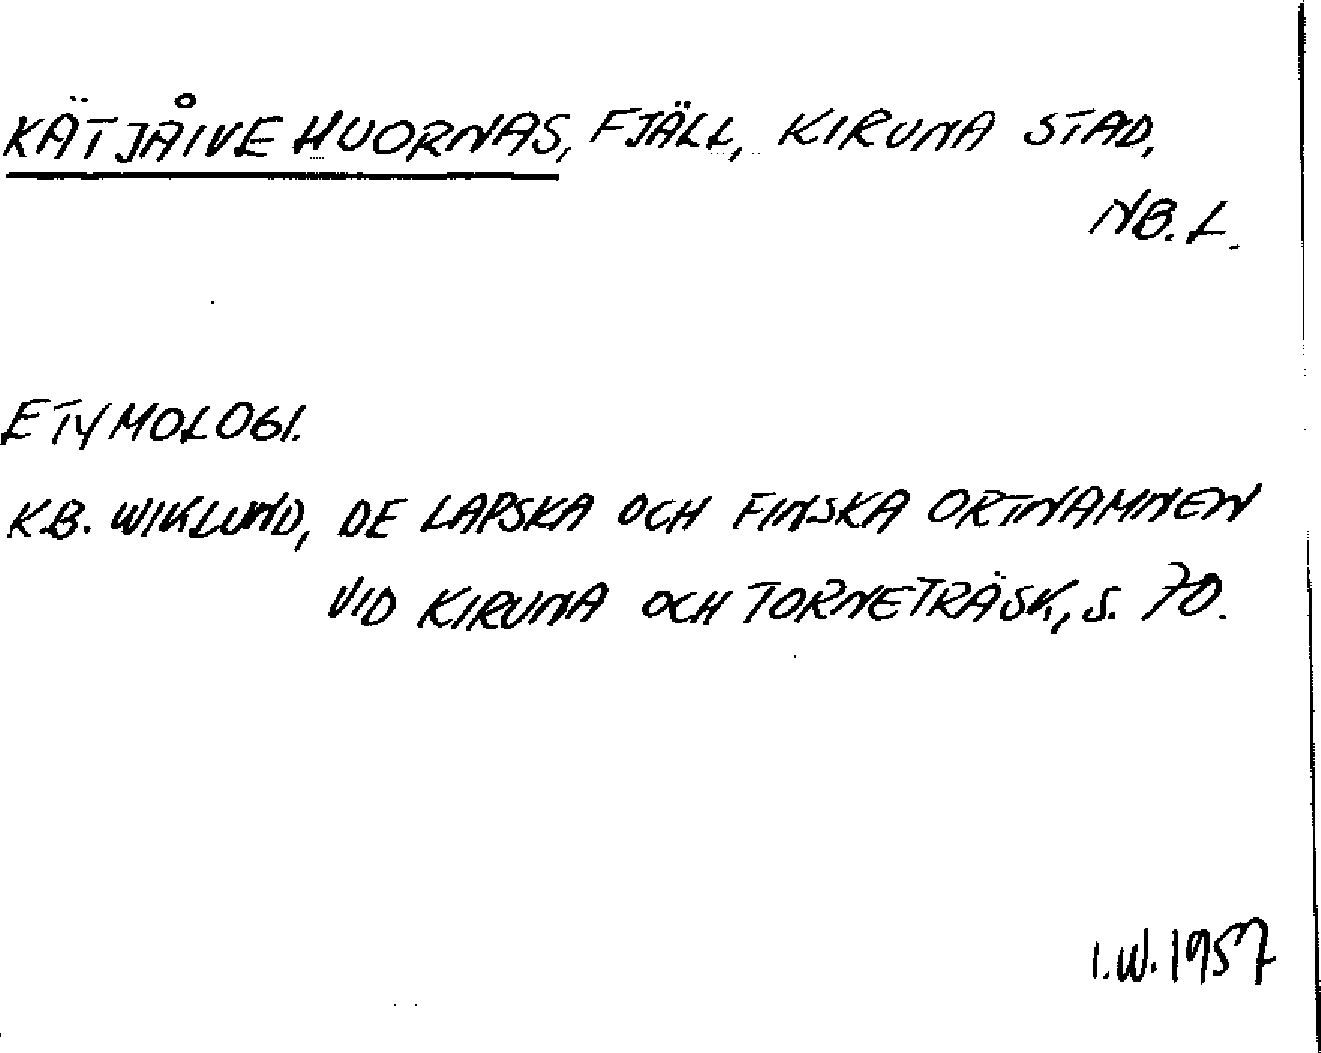 KÄTJÅIVE HUORNAS, FJÄLL, KIRUNA STAD,
NB. L.
ETYMOLOGI.
K.B. WIKLUND, DE LAPSKA OCH FINSKA ORTNAMNEN
VID KIRUNA OCH TORNETRÄSK, S. 70.
I.W. 1957